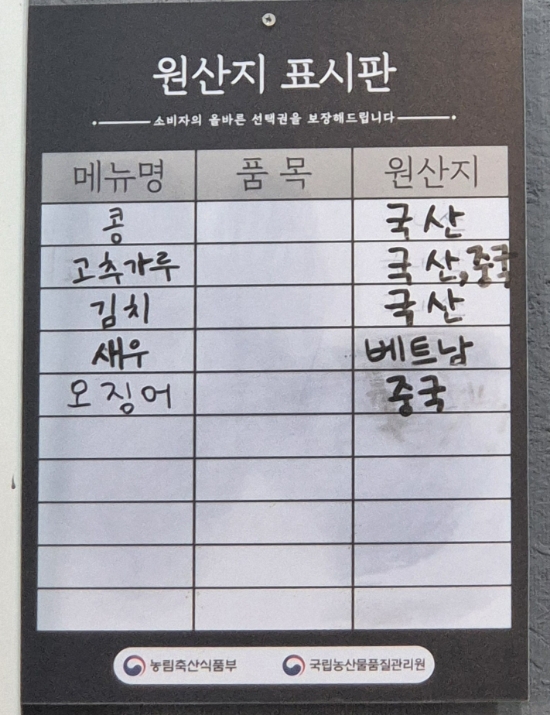 원산지 표시판
소비자의 올바른 선택권을 보장해드립니다
메뉴명 품목 원산지
콩 국산
고추가루 국산,중국
김치 국산
새우 베트남
오징어 중국
농림축산식품부 국립농산물품질관리원